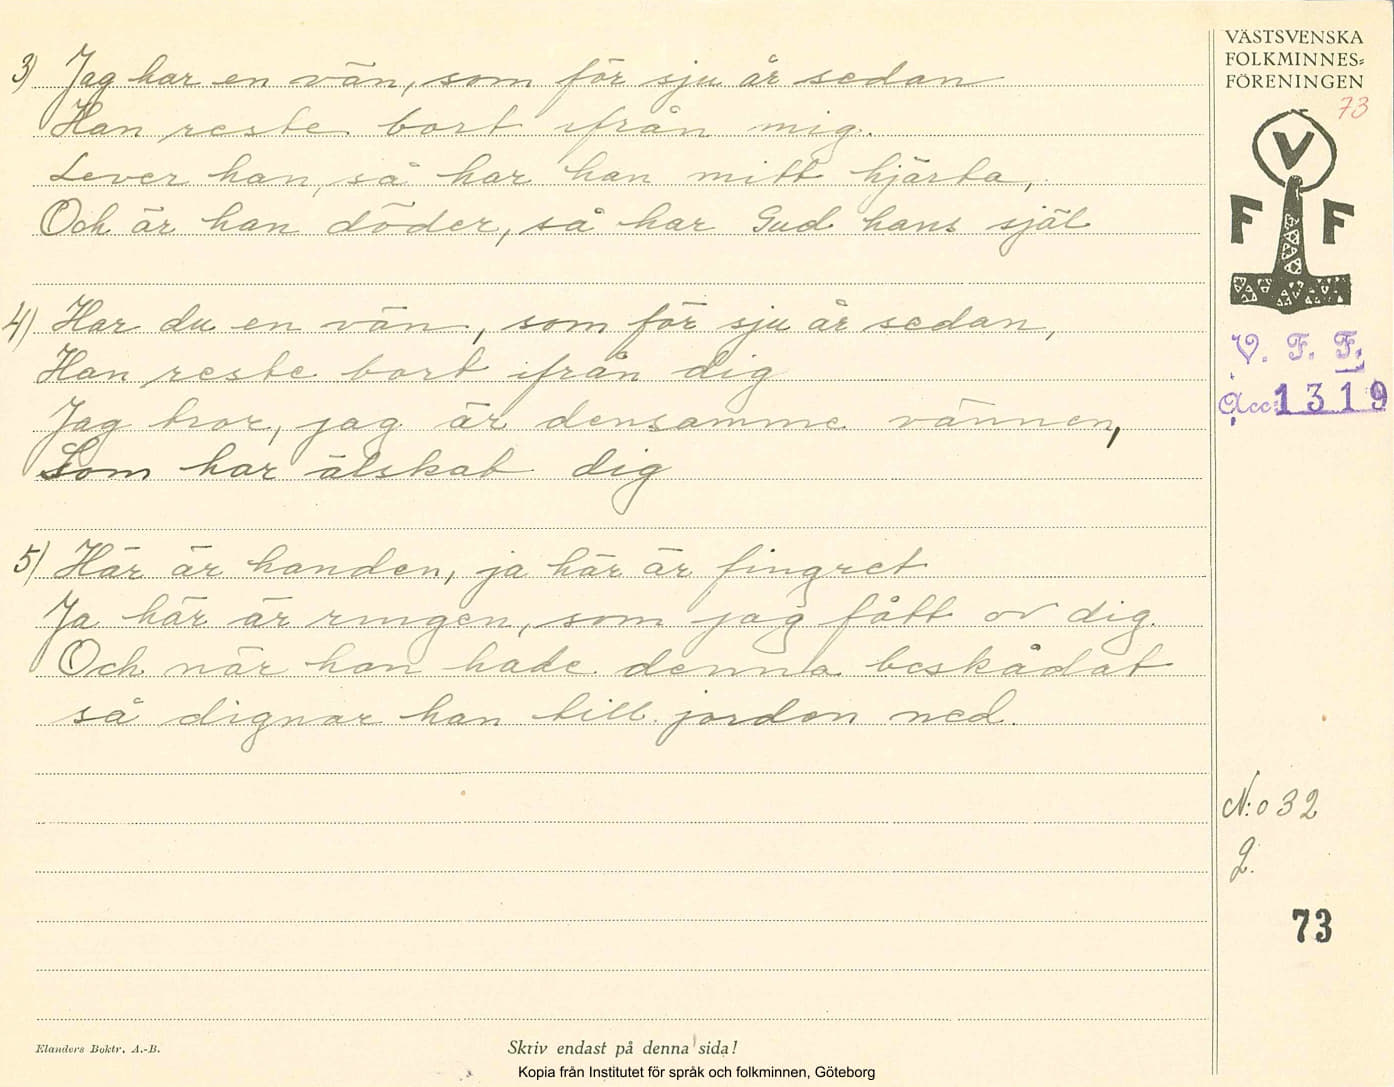 3) Jag har en vän, som för sju år sedan
Han reste bort ifrån mig.
Lever han, så har han mitt hjärta,
Och är han döder, så har Gud hans själ
4) Har du en vän, som för sju år sedan,
Han reste bort ifrån dig
Jag tror, jag är densamme vännen,
Som har älskat dig
5) Här är handen, ja här är fingret
Ja här är ringen, som jag fått av dig.
Och när han hade denna beskådat
så dignar han till jorden ned.
VÄSTSVENSKA
FOLKMINNES=
FÖRENINGEN
73
V
F F
V. F. F.
Acc: 1319
N:o 32
2.
73
Elanders Boktr. A.-B.
Skriv endast på denna sida!
Kopia från Institutet för språk och folkminnen, Göteborg